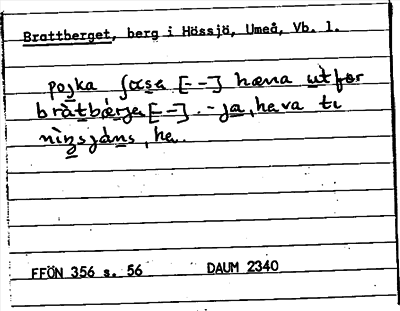 Brattberget, berg i Hössjö, Umeå, Vb. l.
pojka ʃɷsa [--] hæna ut før
bràtbǽrjea [--] .- ja, he va tı
nìŋsjáns, he.
FFÖN 356 s. 56 DAUM 2340